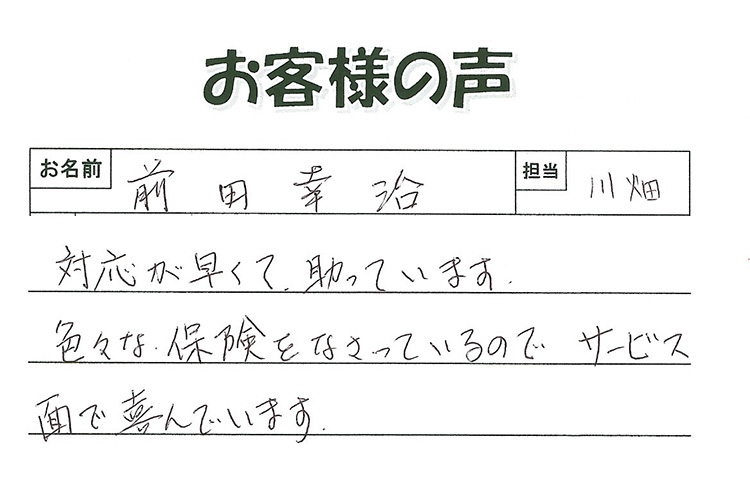 お客様の声
お名前 前田幸治 担当 川畑
対応が早くて、助っています。
色々な、保険をなさっているので サービス
面で喜んでいます。